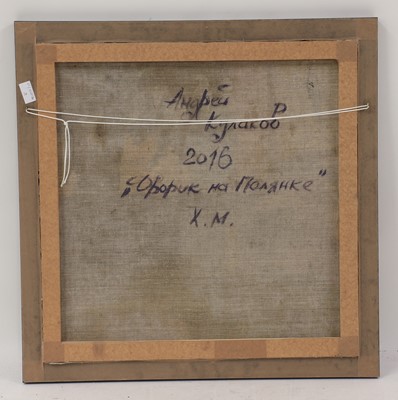 Андрей
Кулаков
2016
"Дворик на Полянке"
Х.М.